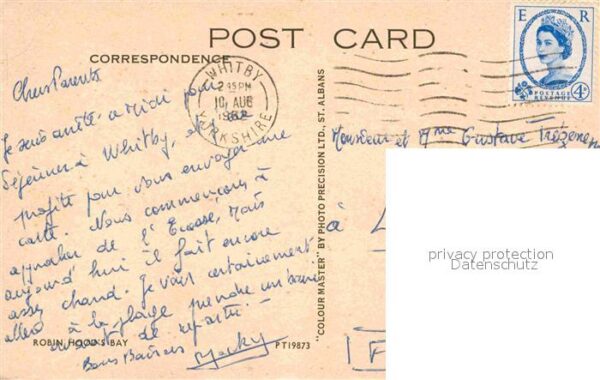 POST CARD
CORRESPONDENCE
E R
POSTAGE
REVENUE
4D
WHITBY
2 45 PM
10 AUG
1962
YORKSHIRE
Chers Parents
Je suis arrêté à midi pour
déjeuner à Whitby, et
profite pour vous envoyer une
carte. Nous commençons à
approcher de l'Ecosse, mais
aujourd'hui il fait encore
assez chaud. Je vais certainement
aller à la plage prendre un bain
avant de repartir.
Bons Baisers Jacky
Monsieur et Mme Gustave
à
"COLOUR MASTER" BY PHOTO PRECISION LTD., ST. ALBANS
privacy protection
Datenschutz
ROBIN HOOD'S BAY
PT19873